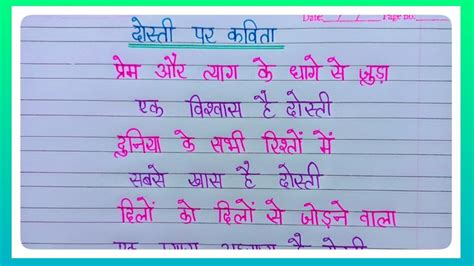 Date__/__/__ Page no.___
दोस्ती पर कविता
प्रेम और त्याग के धागे से जुड़ा
एक विश्वास है दोस्ती
दुनिया के सभी रिश्तों में
सबसे खास है दोस्ती
दिलों को दिलों से जोड़ने वाला
एक है दोस्ती